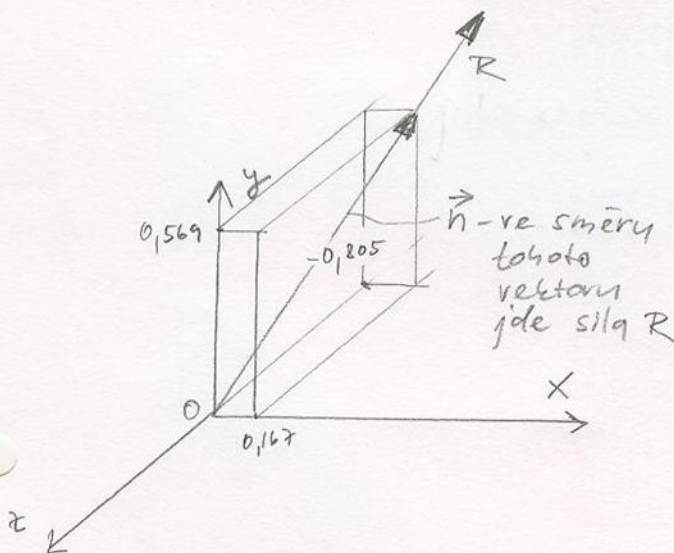 R
y
0,569
-0,805
n - ve směru
tohoto
vektoru
jde síla R
X
0
0,167
z